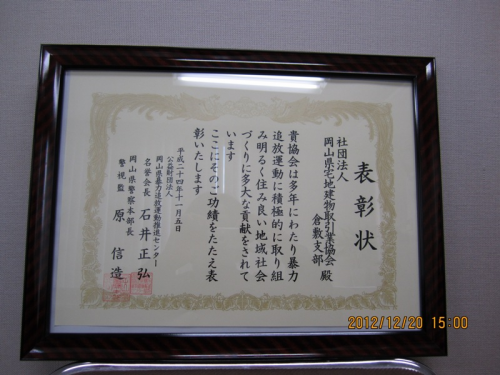 表彰状
社団法人
岡山県宅地建物取引業協会
倉敷支部 殿
貴協会は多年にわたり暴力
追放運動に積極的に取り組
み明るく住み良い地域社会
づくりに多大な貢献をされて
います
ここにそのご功績をたたえ表
彰いたします
平成二十四年十一月五日
公益財団法人
岡山県暴力追放運動推進センター
名誉会長 石井正弘
岡山県警察本部長
警視監 原信造
2012/12/20 15:00